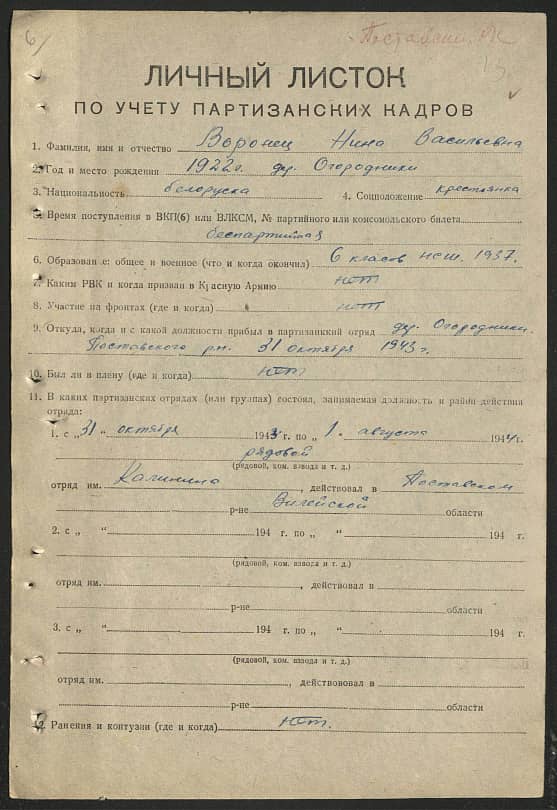 6/
Поставский РК
13
ЛИЧНЫЙ ЛИСТОК
ПО УЧЕТУ ПАРТИЗАНСКИХ КАДРОВ
1. Фамилия, имя и отчество Воронец Нина Васильевна
2. Год и место рождения 1922 г. дер. Огородники
3. Национальность белоруска 4. Соцположение крестьянка
5. Время поступления в ВКП(б) или ВЛКСМ, № партийного или комсомольского билета
беспартийная
6. Образование: общее и военное (что и когда окончил) 6 класов нсш. 1937.
7. Каким РВК и когда призван в Красную Армию нет
8. Участие на фронтах (где и когда) нет
9. Откуда, когда и с какой должности прибыл в партизанкий отряд дер. Огородники.
Поставского р-н. 31 октября 1943 г.
10. Был ли в плену (где и когда) нет
11. В каких партизанских отрядах (или группах) состоял, занимаемая должность и район действия
отряда:
1. с „31" октября 1943 г. по „1." августа 1944 г.
рядовой
(рядовой, ком. взвода и т. д.)
отряд им. Калинина, действовал в Поставском
р-не Вилейской области
2. с „ " 194 г. по „ " 194 г.
(рядовой, ком. взвода и т. д.)
отряд им. , действовал в
р-не области
3. с „ " 194 г. по „ " 194 г.
(рядовой, ком. взвода и т. д.)
отряд им. , действововал в
р-не области
12. Ранения и контузии (где и когда) нет.